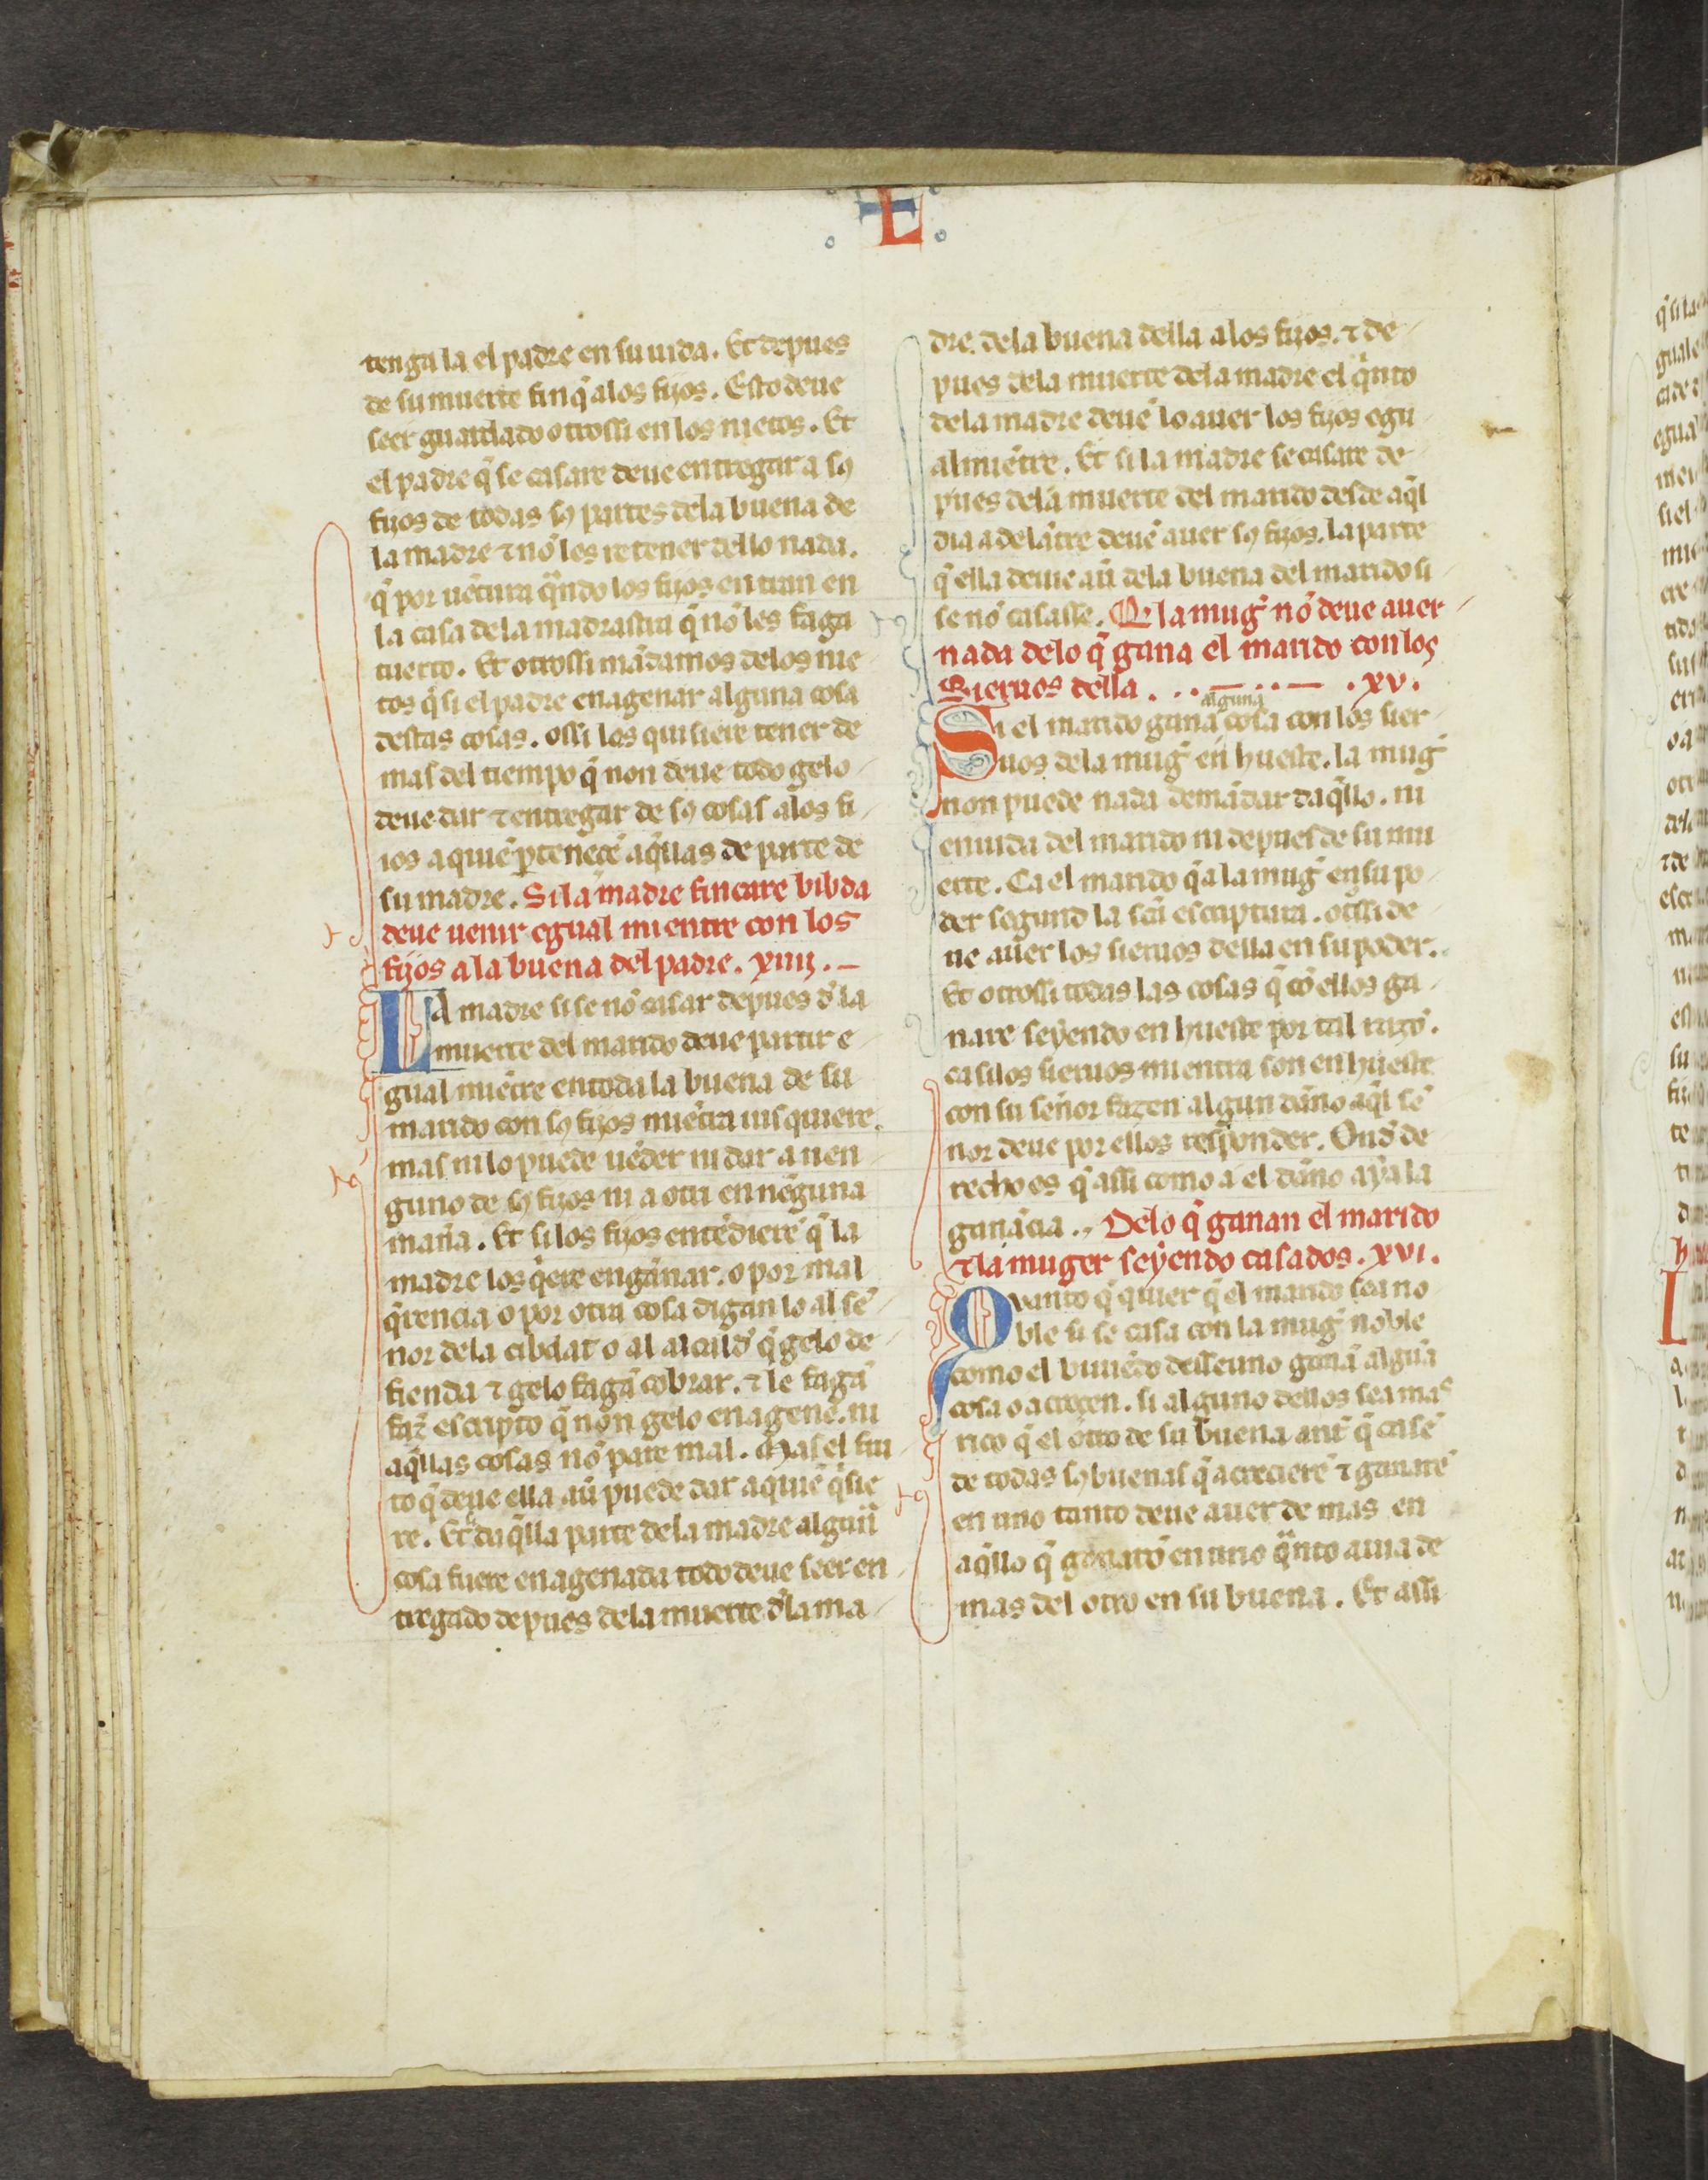 L
tenga la el padre en su uida. Et depues
de su muerte finq̃ alos fijos. Esto deue
seer guardado otrossi en los nietos. Et
el padre q̃ se casare deue entregar a sꝯ
fijos de todas sꝯ partes dela buena de
la madre ⁊ nõ les retener dello nada.
q̃ por uẽtura q̃ndo los fijos entran en
la casa dela madrastra q̃ nõ les faga
tuerto. Et otrossi mãdamos delos nie
tos q̃ si el padre enagenar alguna cosa
destas cosas. o ssi los quisiere tener de
mas del tiempo q̃ non deue todo gelo
deue dar ⁊ entregar de sꝯ cosas alos fi
ios a quiẽ ꝑtenecẽ aq̃llas de parte de
su madre. Si la madre fincare bibda
deue uenir egual mientre con los
fijos a la buena del padre. xiiij.
LA madre si se nõ casar depues d̃ la
muerte del marido deue partir e
gual miẽtre en toda la buena de su
marido con sꝯ fijos miẽtra uisquiere.
mas ni lo puede uẽder ni dar a nen
guno de sꝯ fijos ni a otri en nẽguna
maña. Et si los fijos entẽdierẽ q̃ la
madre los q̃ere engãnar. o por mal
q̃rencia o por otra cosa digan lo al se
nor dela cibdat o al alcald̃ q̃ gelo de
fienda ⁊ gelo fagã cobrar. ⁊ le fagã
faz̃ escripto q̃ non gelo enagenẽ. ni
aq̃llas cosas nõ pare mal. Mas el fru
to q̃ deue ella aũ puede dar a quiẽ q̃sie
re. Et d̃ aq̃lla parte dela madre algũa
cosa fuere enagenada todo deue seer en
tregado depues dela muerte d̃la ma
dre. dela buena della a los fijos. ⁊ de
pues dela muerte dela madre el q̃nto
dela madre deuẽ lo auer los fijos egu
almiẽtre. Et si la madre se casare de
pues dela muerte del marido desde aq̃l
dia adelãtre deuẽ auer sꝯ fijos. la parte
q̃ ella deuie aũ dela buena del marido si
se nõ casasse. Q̃ la mug̃ nõ deue auer
nada delo q̃ gana el marido con los
Sieruos della . . . — . . — . xv.
Si el marido gana alguna cosa con los sier
uos dela mug̃ en hueste. la mug̃
non puede nada demãdar daq̃llo. ni
en uida del marido ni depues de su mu
erte. Ca el marido q̃ a la mug̃ en su po
der segund la scã escriptura. otssi de
ue auer los sieruos della en su poder.
Et otrossi todas las cosas q̃ cõ ellos ga
nare seyendo en hueste por tal razõ.
ca si los sieruos mientra son en hueste
con su señor fazen algun dãno aq̃l se
nor deue por ellos responder. Ond̃ de
recho es q̃ assi como a el dãno aya la
ganãcia. Delo q̃ ganan el marido
⁊ la muger seyendo casados. xvi.
Quanto q̃ quier q̃ el marido sea no
ble si se casa con la mug̃ noble
como el biuiẽdo desseuno ganã algũa
cosa o acrecen. si alguno dellos sea mas
rico q̃ el otro de su buena ant̃ q̃ casẽ
de todas sꝯ buenas q̃ acrecierẽ ⁊ ganarẽ
en uno tanto deue auer de mas en
aq̃llo q̃ ganarõ en uno q̃nto auia de
mas del otro en su buena. Et assi